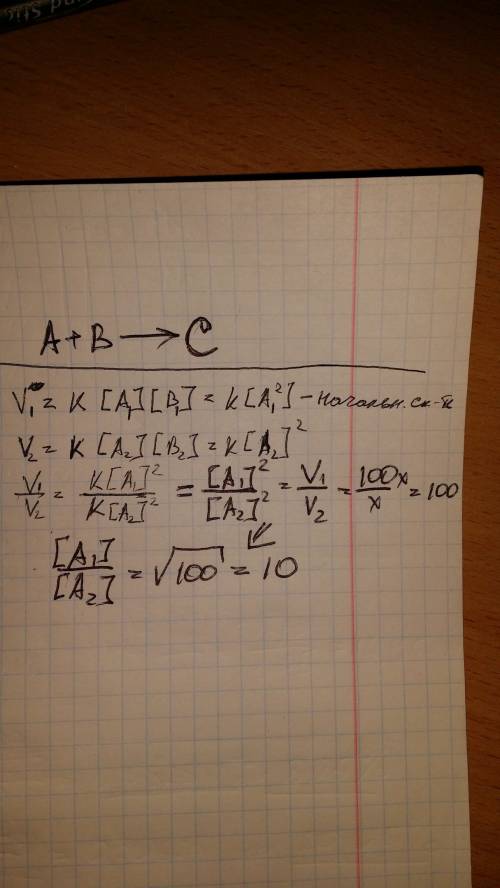 A+B → C
V₁ = K [A₁][B₁] = K[A₁²] - началь. ск-ть
V₂ = K [A₂][B₂] = K[A₂]²
V₁/V₂ = K[A₁]²/K[A₂]² = [A₁]²/[A₂]² = V₁/V₂ = 100x/x = 100
[A₁]/[A₂] = √100 = 10